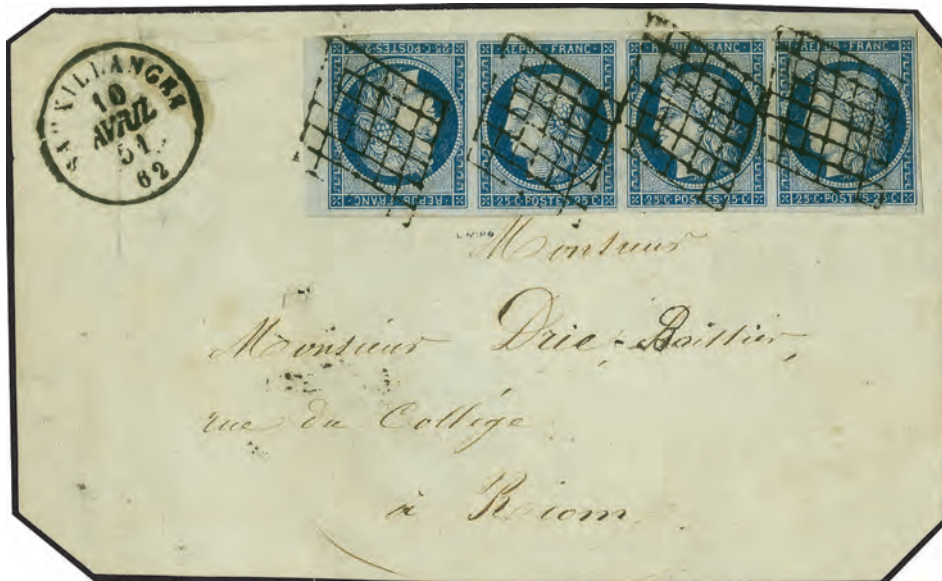 SAUXILLANGES
10
AVRIL
51
62
25·C·POSTES·25·C
REPUB·FRANC·
REPUB·FRANC·
25·C·POSTES·25·C
REPUB·FRANC·
25·C·POSTES·25·C
REPUB·FRANC·
25·C·POSTES·25·C
Monsieur
Monsieur Drie-Baittier,
rue du Collège
à Riom